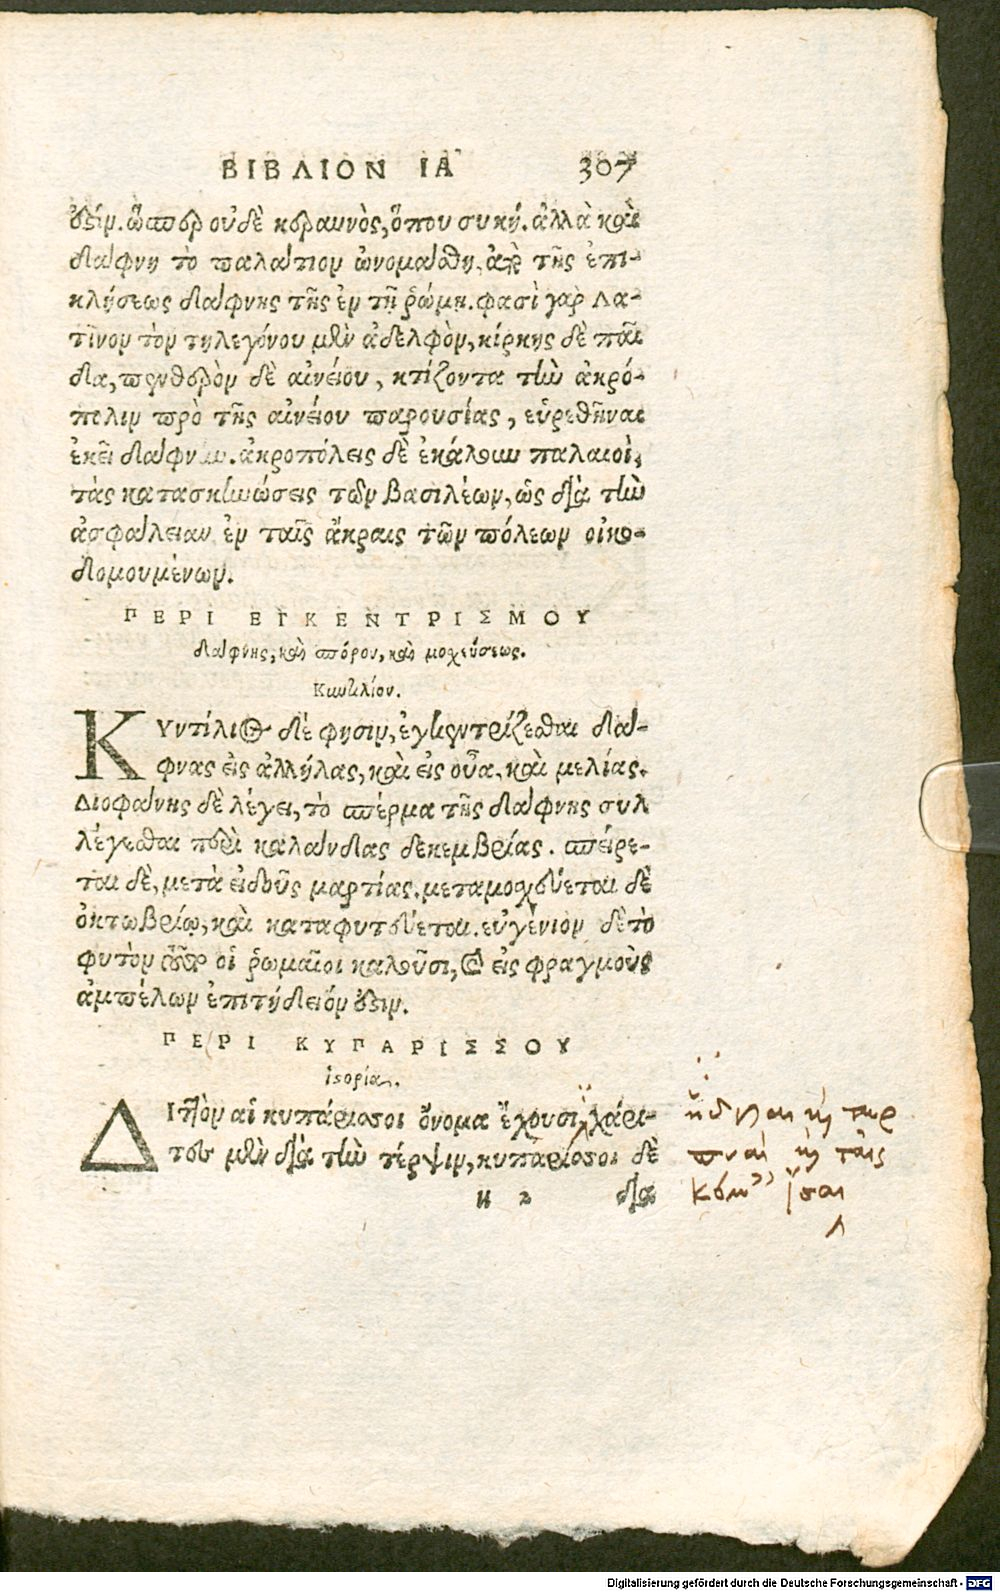 ΒΙΒΛΙΟΝ ΙΑ 307
ἐστίν. ὥσπερ οὐδὲ κεραυνὸς, ὅπου συκῆ. ἀλλὰ καὶ
δάφνη τὸ παλάτιον ὠνομάσθη, ἀπὸ τῆς ἐπι-
κλήσεως δάφνης τῆς ἐν τῇ ῥώμῃ. φασὶ γὰρ Λα-
τῖνον τὸν τηλεγόνου μὲν ἀδελφὸν, κίρκης δὲ παῖ
δα, πενθερὸν δὲ αἰνείου, κτίζοντα τὴν ἀκρό-
πολιν πρὸ τῆς αἰνείου παρουσίας, εὑρεθῆναι
ἐκεῖ δάφνην. ἀκροπόλεις δὲ ἐκάλουν παλαιοὶ,
τὰς κατασκηνώσεις τῶν βασιλέων, ὡς διὰ τὴν
ἀσφάλειαν ἐν ταῖς ἄκραις τῶν πόλεων οἰκο-
δομουμένων.
ΠΕΡΙ ΕΓΚΕΝΤΡΙΣΜΟΥ
δάφνης, καὶ σπόρου, καὶ μοχεύσεως.
Κυντιλίου.
ΚΥΝτίλιος δέ φησιν, ἐγκεντρίζεσθαι δάφ-
φνας εἰς ἀλλήλας, καὶ εἰς οὖα, καὶ μελίας.
Διοφάνης δὲ λέγει, τὸ σπέρμα τῆς δάφνης συλ
λέγεσθαι περὶ καλάνδας δεκεμβρίας. σπείρε-
ται δὲ, μετὰ εἰδοῦς μαρτίας. μεταμοχεύεται δὲ
ὀκτωβρίῳ, καὶ καταφυτεύεται. εὐγένιον δὲ τὸ
φυτὸν ὅπερ οἱ ῥωμαῖοι καλοῦσι, καὶ εἰς φραγμοὺς
ἀμπέλων ἐπιτήδειόν ἐστιν.
ΠΕΡΙ ΚΥΠΑΡΙΣΣΟΥ
ἱστορία.
ΔΙττὸν αἱ κυπάρισσοι ὄνομα ἔχουσι, χάρι-
τες μὲν διὰ τὴν τέρψιν, κυπάρισσοι δὲ
υ 2 διὰ
Digitalisierung gefördert durch die Deutsche Forschungsgemeinschaft - DFG